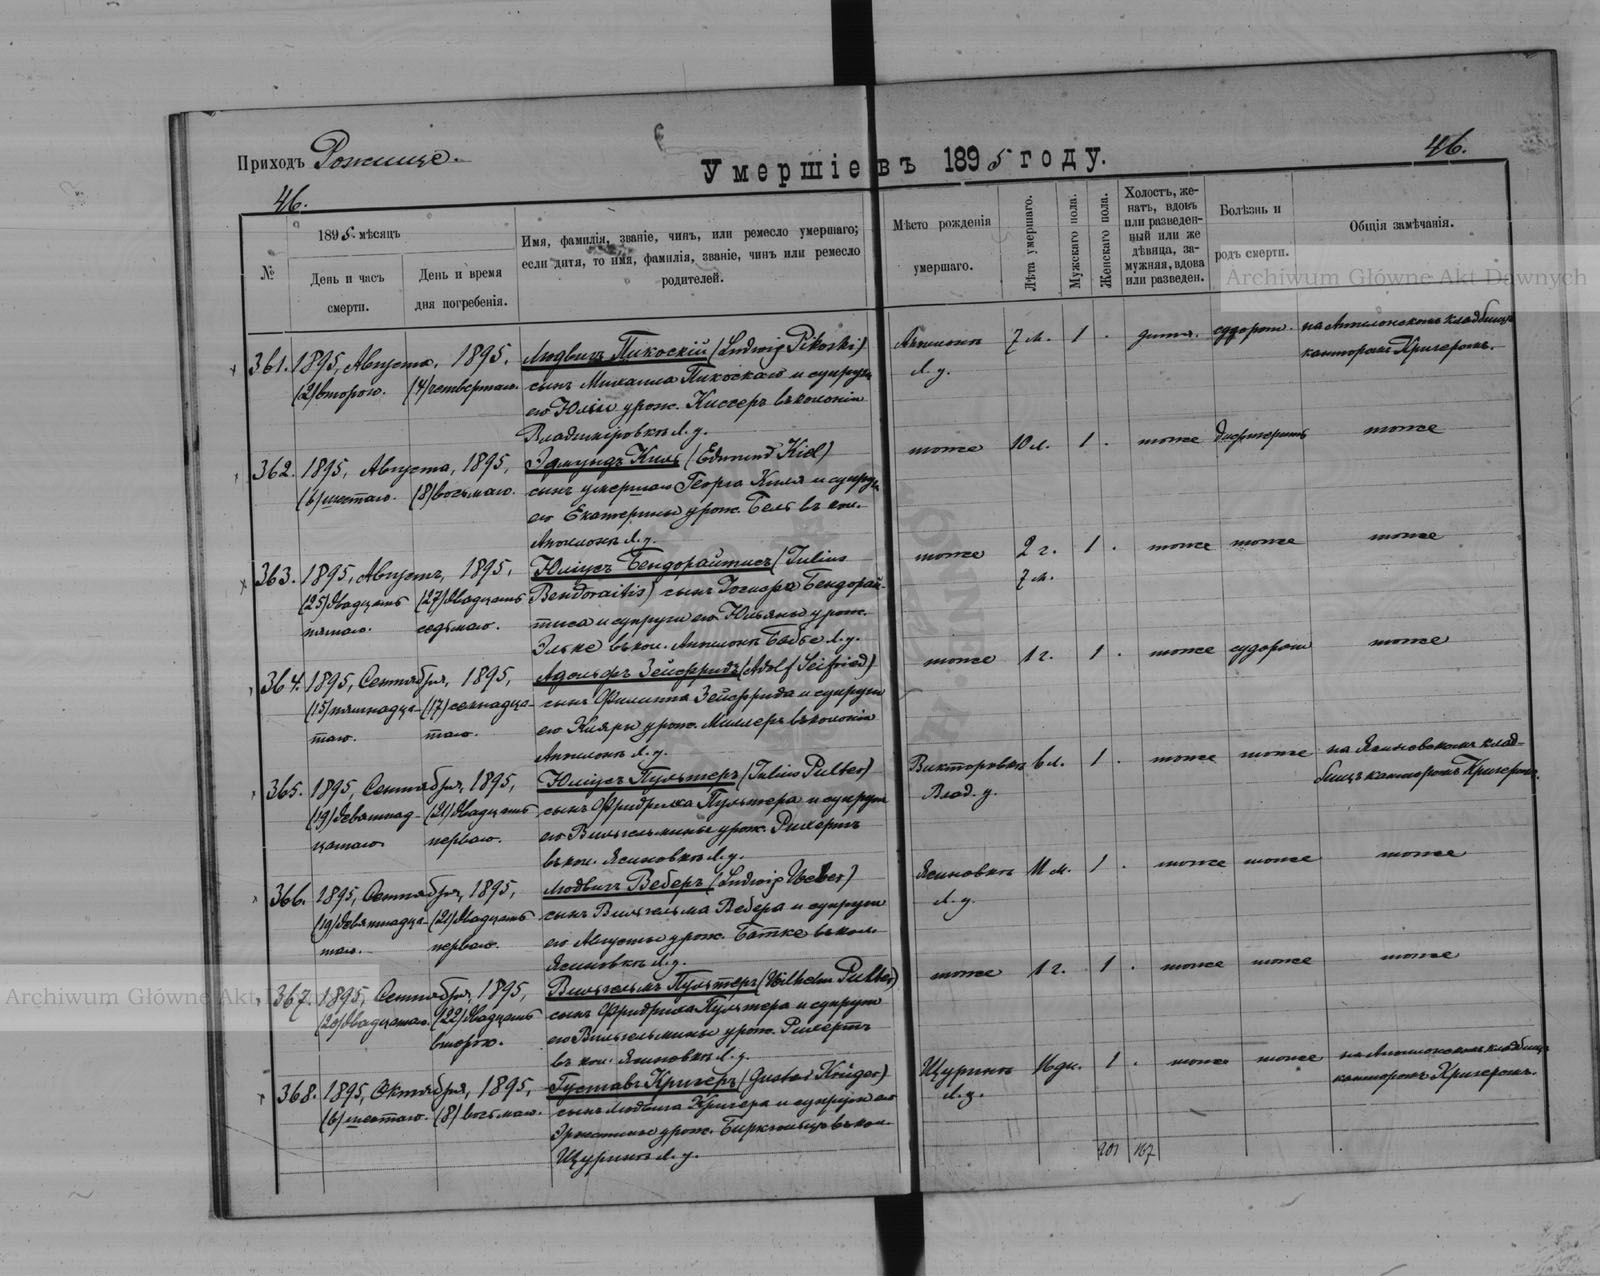 Приходъ Рожище.
Умершіе въ 1895 году.
46.
46.
№
1895 мѣсяцъ
День и часъ
смерти.
День и время
дня погребенія.
Имя, фамилія, званіе, чинъ, или ремесло умершаго;
если дитя, то имя, фамилія, званіе, чинъ или ремесло
родителей.
Мѣсто рожденія
умершаго.
Лѣта умершаго.
Мужскаго пола.
Женскаго пола.
Холостъ, же-
натъ, вдовъ
или разведен-
ный или же
дѣвица, за-
мужняя, вдова
или разведен.
Болѣзнь и
родъ смерти.
Общія замѣчанія.
Archiwum Główne Akt Dawnych
361. 1895, Августа, 1895, Людвигъ Пикоскій (Ludwig Pikoski) 7 м. 1 . дитя. судорож.
(2) второго. (4) четвертаго. сынъ Михаила Пикоскаго и супруги Л. у. канторомъ Кригеромъ.
его Юліи урож. Киссеръ въ колоніи
Владимировкѣ Л. у.
362. 1895, Августа, 1895, Эдмундъ Киль (Edmund Kiel) тоже 10 м. 1 . тоже дифтеритъ тоже
(6) шестаго. (8) восьмаго. сынъ умершаго Георга Киля и супруги
его Екатерины урож. въ кол.
Л. у.
363. 1895, Августъ, 1895, Юліусъ Бендорайтисъ (Julius тоже 2 г. 1 . тоже тоже тоже
(25) двадцать (27) двадцать Bendoraitis) сынъ Бендорай- 7 м.
пятаго. седьмаго. тиса и супруги его Юльяны урож.
въ кол. Л. у.
364. 1895, Сентября, 1895, Адольфъ Зейфридъ (Adolf Seifried) тоже 1 г. 1 . тоже судорож тоже
(15) пятнадца- (17) семнадца- сынъ Филиппа Зейфрида и супруги
таго. таго. его Клары урож. Миллеръ въ колоніи
Л. у.
365. 1895, Сентября, 1895, Юліусъ Пультеръ (Julius Pulter) Викторовка 6 м. 1 . тоже тоже на Ясиновскомъ клад-
(19) девятнад- (21) двадцать сынъ Фридриха Пультера и супруги Влад. у. бищѣ канторомъ Кригеромъ.
цатаго первого. его Вильгельмины урож. Рихертъ
въ кол. Ясиновкѣ Л. у.
366. 1895, Сентября, 1895, Людвигъ Веберъ (Ludwig Weber) Ясиновка 11 м. 1 . тоже тоже тоже
(19) девятнадца- (21) двадцать сынъ Вильгельма Вебера и супруги Л. у.
таго. первого. его Августы урож. Батке въ кол.
Ясиновкѣ Л. у.
367. 1895, Сентября, 1895, Вильгельмъ Пультеръ (Wilhelm Pulter) тоже 1 г. 1 . тоже тоже тоже
(20) двадцатаго. (22) двадцать сынъ Фридриха Пультера и супруги
второго. его Вильгельмины урож. Рихертъ
въ кол. Ясиновкѣ Л. у.
368. 1895, Октября, 1895, Густавъ Кригеръ (Gustav Krüger) Щуринъ 16 дн. 1 . тоже тоже
(6) шестаго. (8) восьмаго. сынъ Людвига Кригера и супруги его Л. у. канторомъ Кригеромъ.
Эрнестины урож. въ кол.
Щуринъ Л. у.
201 167
Archiwum Główne Akt